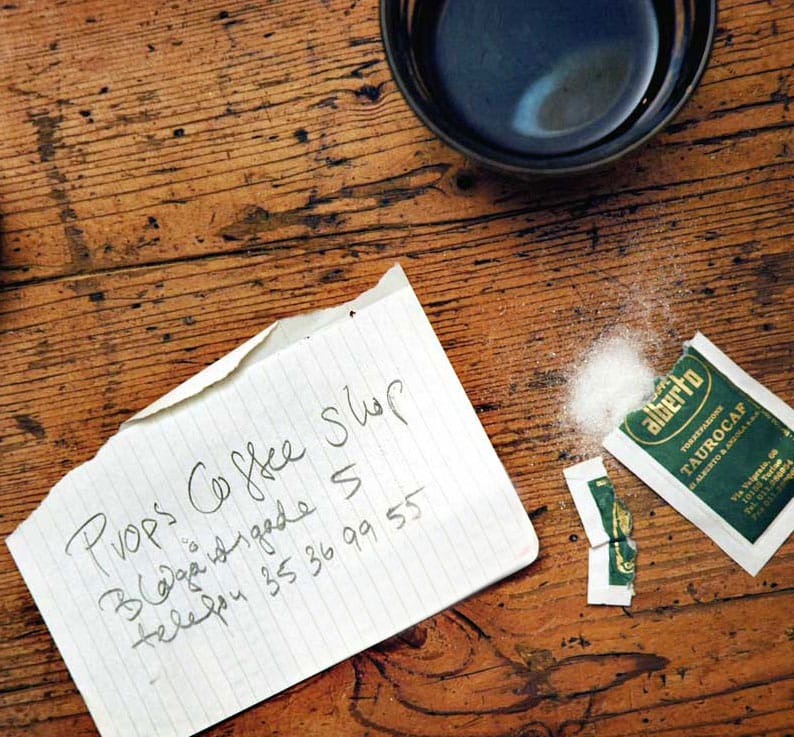 Props Coffee Shop
Blågårdsgade 5
telefon 35 36 99 55
alberto
TORREFAZIONE
TAUROCAF
DI ALBERTO & ANZOLA